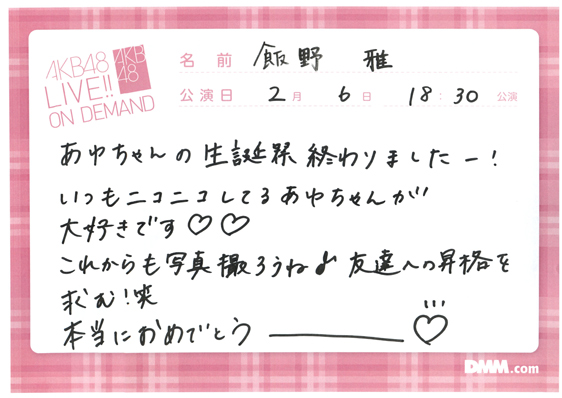 AKB48
LIVE!!
ON DEMAND
AKB
48
名前 飯野 雅
公演日 2月 6日 18:30 公演
あゆちゃんの生誕祭終わりましたー!
いつもニコニコしてるあゆちゃんが
大好きです♡♡
これからも写真撮ろうね♪ 友達への昇格を
求む!笑
本当におめでとう———♡
DMM.com